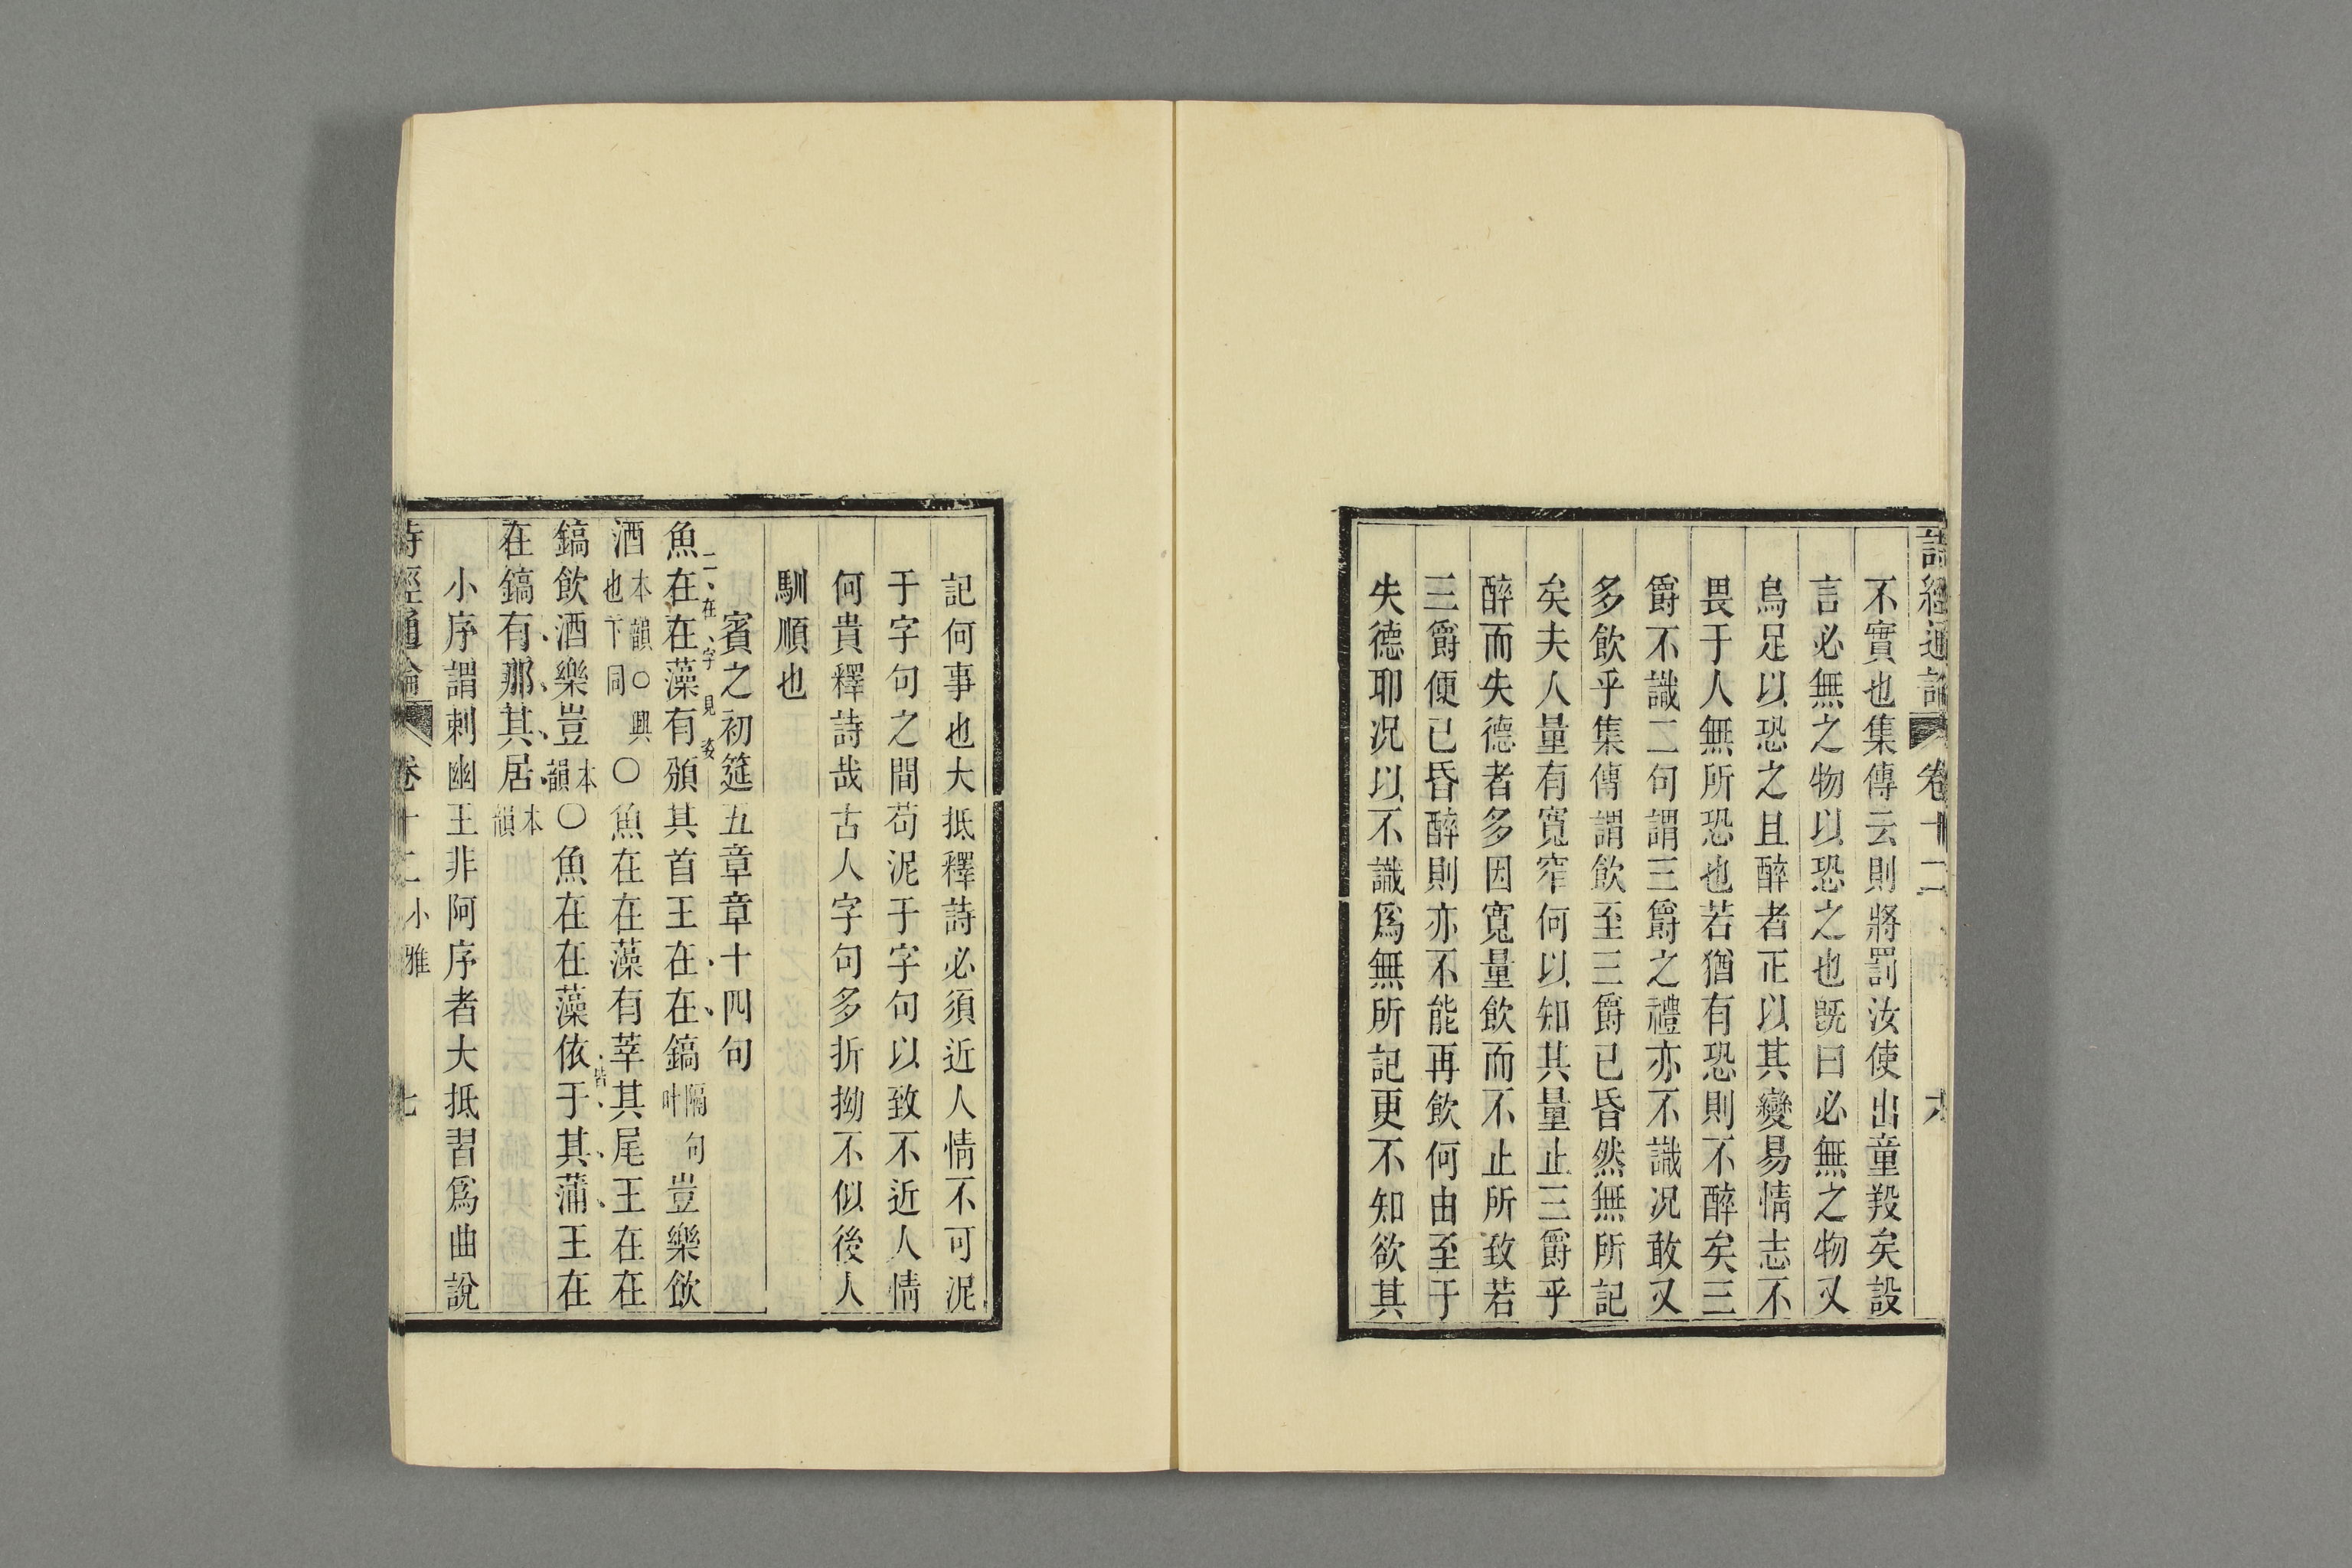 詩經通論 卷十二 六
不實也集傳云則將罰汝使出童羖矣設
言必無之物以恐之也旣曰必無之物又
烏足以恐之且醉者正以其變易情志不
畏于人無所恐也若猶有恐則不醉矣三
爵不識二句謂三爵之禮亦不識况敢又
多飲乎集傳謂飲至三爵已昏然無所記
矣夫人量有寬窄何以知其量止三爵乎
醉而失德者多因寬量飲而不止所致若
三爵便已昏醉則亦不能再飲何由至于
失德耶况以不識爲無所記更不知欲其
記何事也大抵釋詩必須近人情不可泥
于字句之間苟泥于字句以致不近人情
何貴釋詩哉古人字句多折拗不似後人
馴順也
賓之初筵五章章十四句
二在字見姿
魚在在藻有頒其首王在在鎬隔句叶豈樂飲
酒本韻○興也下同○魚在在藻有莘其尾王在在
鎬飲酒樂豈本韻○魚在在藻依于其蒲王在
在鎬有那其居本韻
小序謂刺幽王非阿序者大抵習爲曲說
詩經通論 卷十二 小雅 七